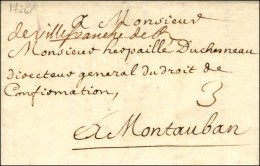 1726
A Monsieur
de villefranche de R
Monsieur hespaille Duchesneau
directeur general du droit de
Confirmation,
3
A Montauban